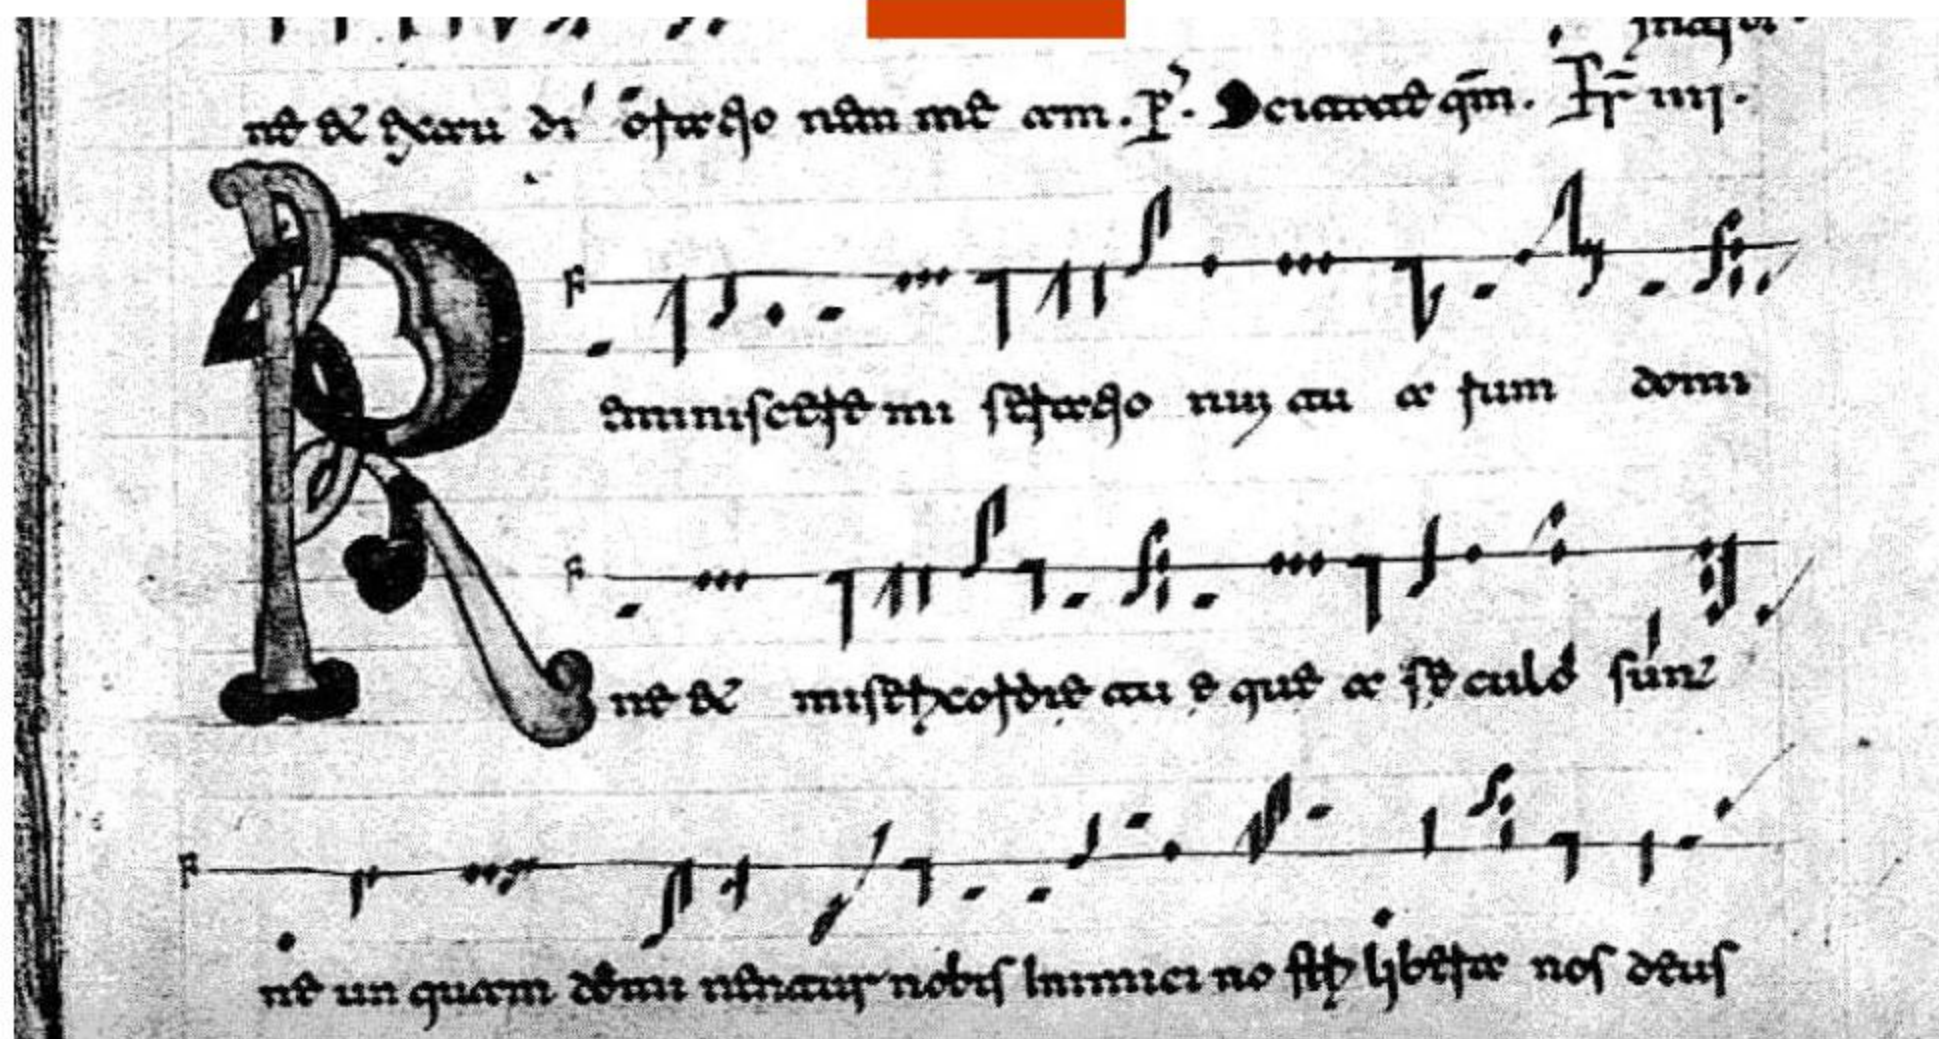 ne & exau di oratio nem me am. qm̄. Fr̄ iiij.
Reminiscere mi seratio nuȝ tu a rum domi
ne & misericordie tu e que a se culo sunt
ne un quam domi nentur nobis Inimici no stri libera nos deus